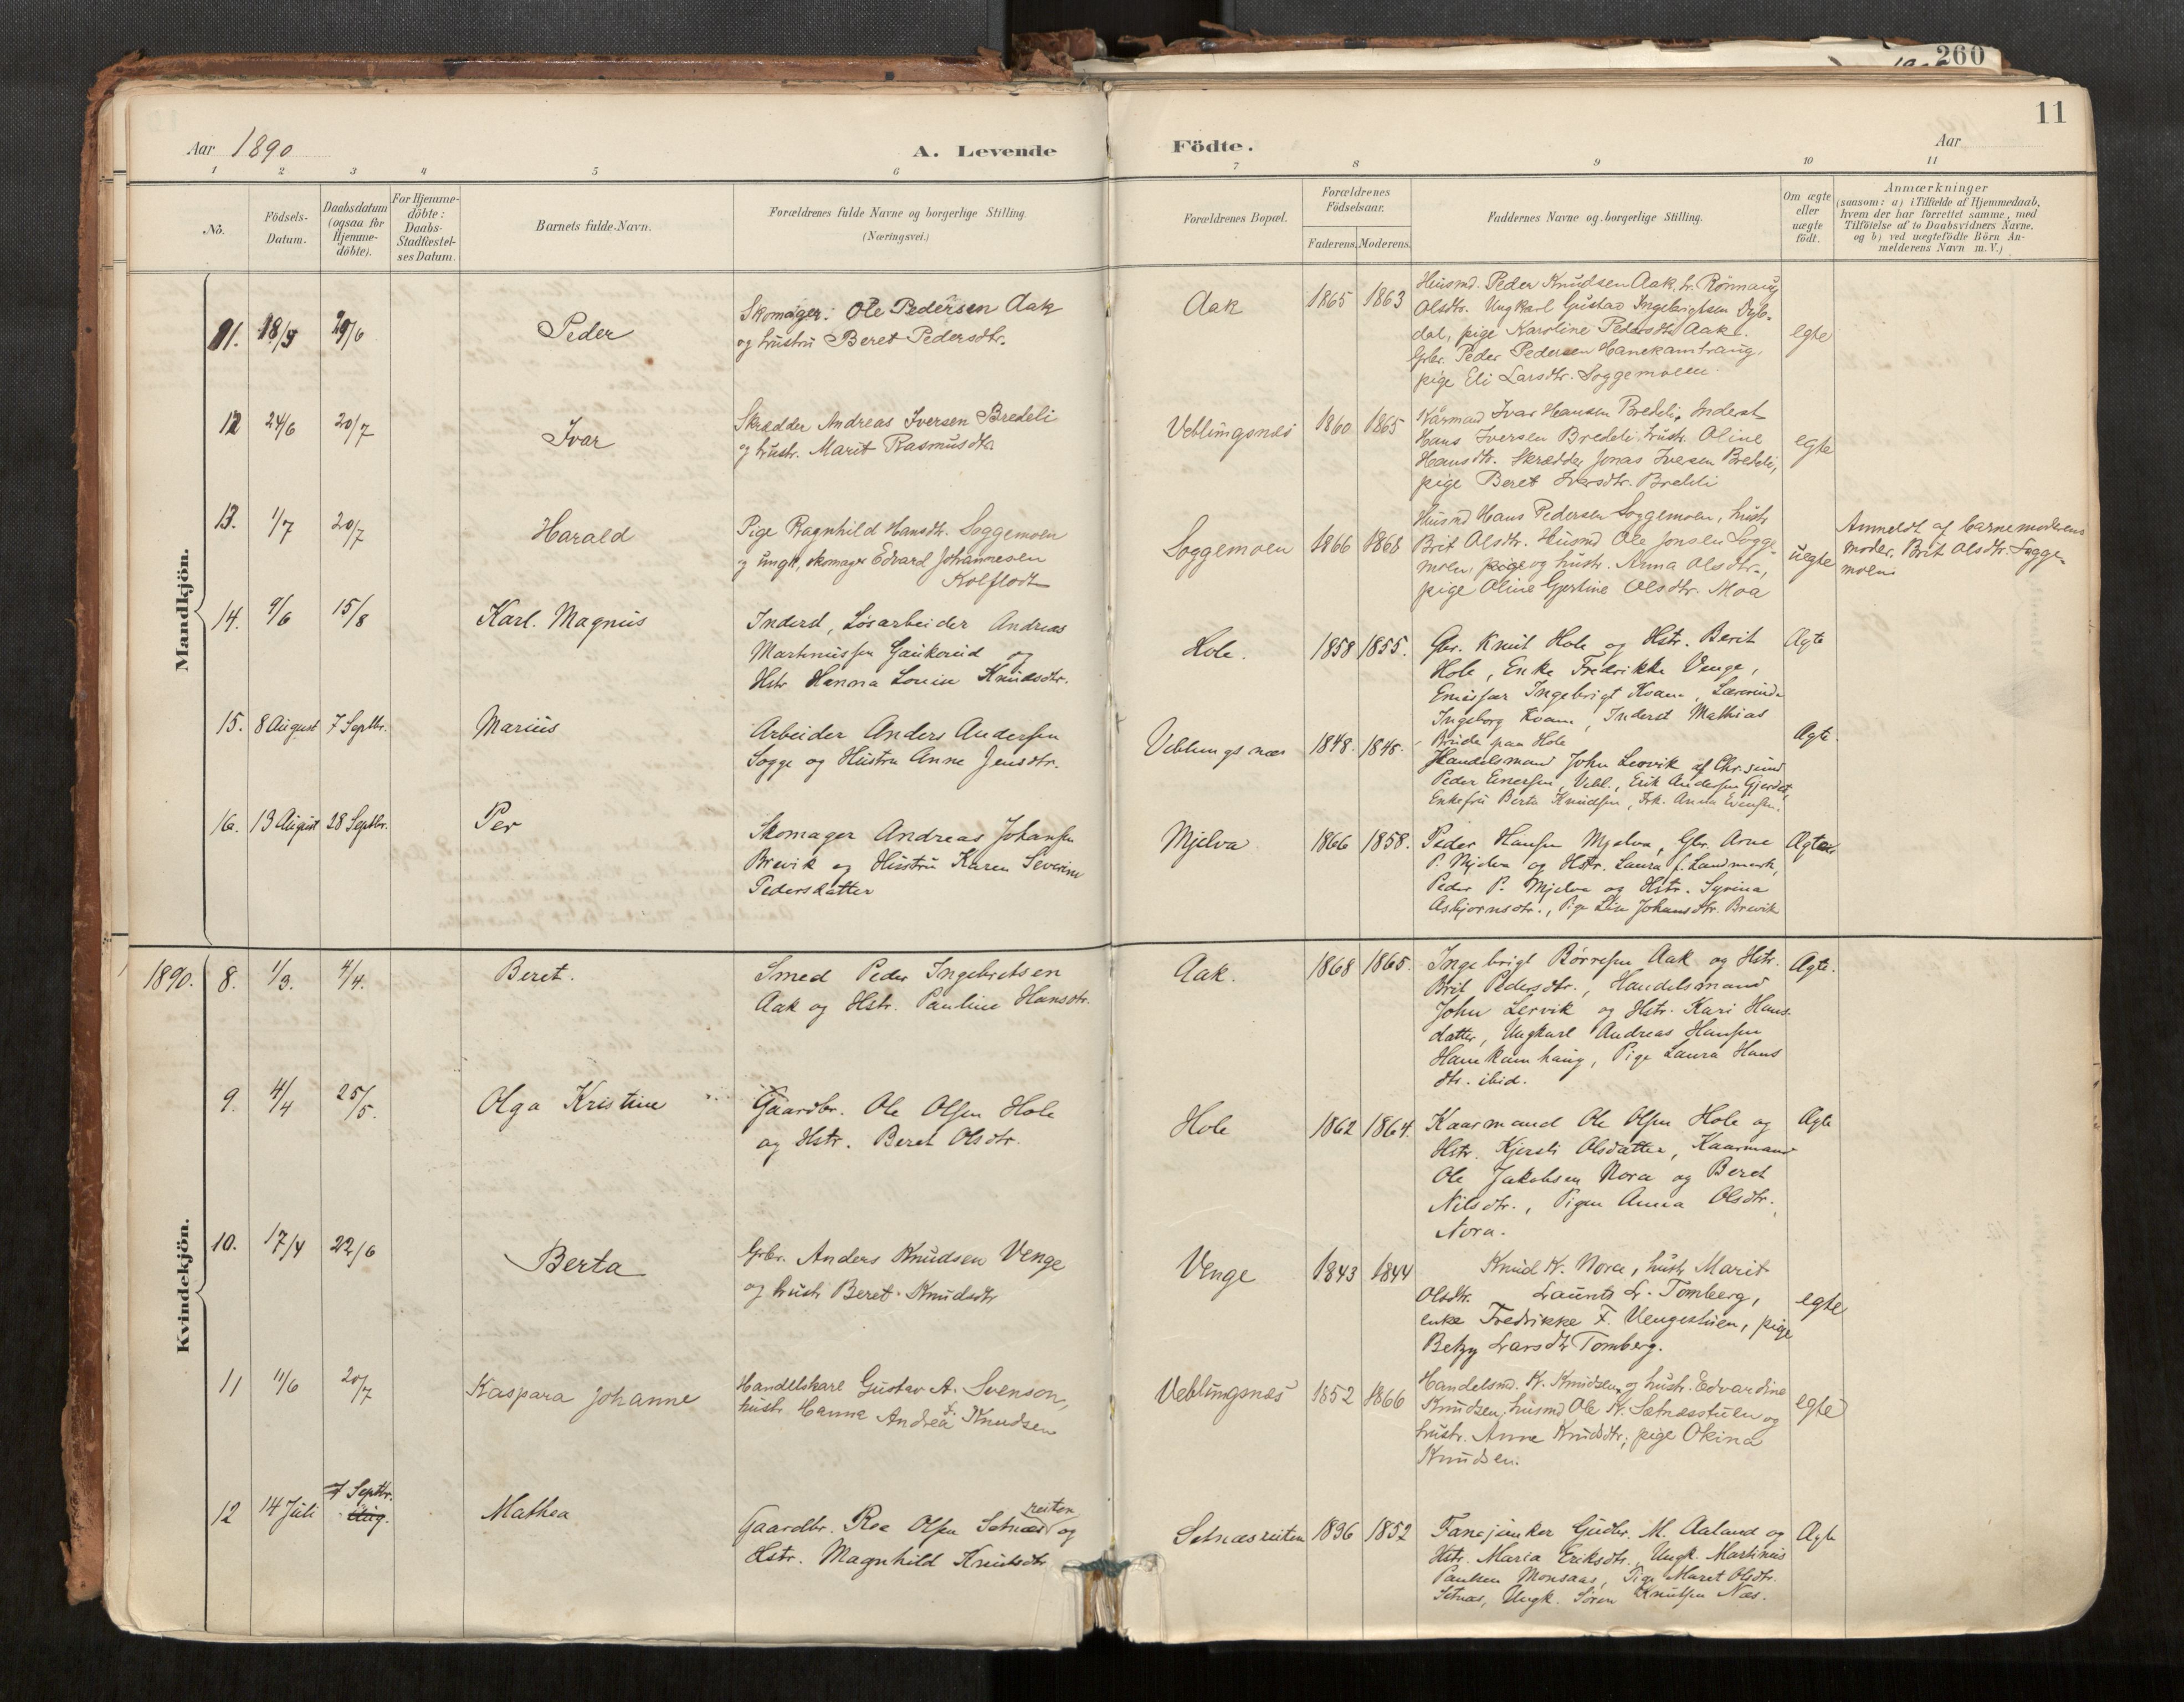 260
11
Aar 1890
A. Levende Födte.
Aar
1 2 3 4 5 6 7 8 9 10 11
No.
Födsels-Datum.
Daabsdatum (ogsaa for Hjemme-döbte).
For Hjemme-döbte: Daabs-Stadfæstel-ses Datum.
Barnets fulde Navn.
Forældrenes fulde Navne og borgerlige Stilling. (Næringsvei.)
Forældrenes Bopæl.
Forældrenes Födselsaar.
Faderens. Moderens.
Faddernes Navne og borgerlige Stilling.
Om ægte eller uægte födt.
Anmærkninger
(saasom: a) i Tilfælde af Hjemmedaab,
hvem der har forrettet samme, med
Tilföielse af to Daabsvidners Navne.
og b) ved uægtefödte Börn An-
melderens Navn m. V.)
Mandkjön.
11. 18/5 29/6 Peder
Skomager: Ole Pedersen Aak
og hustru Beret Pedersdtr.
Aak 1865 1863
Husmd. Peder Knudsen Aak, h. Rönnaug
Olsdtr. Ungkarl Gustav Ingebrigtsen Dyb-
dal, pige Karoline Pedersdtr Aak
Grbr. Peder Pedersen
pige Eli Larsdtr. Soggemoen
egte
12 24/6 20/7 Ivar
Skrædder Andreas Iversen Bredeli
og hustr. Marit Rasmusdtr.
Veblungsnæs 1860 1865
Kårmand Ivar Hansen Bredeli, Inderst
Hans Iversen Bredeli, hustr. Oline
Hansdtr. Skrædder Jonas Iversen Bredeli,
pige Beret Iversdtr. Bredeli
egte
13. 1/7 20/7 Harald
Pige Ragnhild Hansdtr. Soggemoen
og ungk, skomager Edvard Johannesen
Kolflodt
Soggemoen 1866 1868
Husmd Hans Pedersen Soggemoen, hustr
Brit Olsdtr. Husmd Ole Jonsen Sogge-
moen, pige og hustr. Anna Olsdtr.,
pige Oline Gjertine Olsdtr. Moa
uegte
Anmeldt af barnemoderens
moder, Brit Olsdtr. Sogge-
moen
14. 9/6 15/8 Karl. Magnus
Inderst, Løsarbeider Andreas
Martinussen Gaukereid og
Hstr Hanna Louise Knudsdtr.
Hole. 1858 1855.
Gbr. Knut Hole og Hstr. Berit
Hole, Enke Fredrikke Venge,
Emissær Ingebrigt Kvam, Lærerinde
Ingeborg Kvam, Inderst Mathias
Brude paa Hole
Ægte
15. 8 August 7 Septbr. Marius
Arbeider Anders Andersen
Sogge og Hustru Anne Jensdtr.
Veblungsnæs 1848. 1845.
Handelsmand John Leervik af Chr.sund
Peder Einersen, Vebl., Erik Andersen Gjerdet,
Enkefru Berta Knudsen, Frk. Anna Evensen.
Ægte.
16. 13 August 28 Septbr. Per
Skomager Andreas Johansen
Brevik og Hustru Karen Severine
Pedersdatter
Mjelva 1866 1858.
Peder Hansen Mjelva, Gbr. Arne
P. Mjelva og Hstr. Laura f. Landmark,
Peder P. Mjelva og Hstr. Syrina
Asbjørnsdtr., Pige Lina Johansdtr. Brevik
Kvindekjön.
1890. 8. 1/3. 4/4. Beret.
Smed Peder Ingebretsen
Aak og Hstr. Pauline Hansdtr.
Aak. 1868 1865.
Ingebrigt Børresen Aak og Hstr.
Brit Pedersdtr., Handelsmand
John Lervik og Hstr. Kari Hans-
datter, Ungkarl Andreas Hansen
Hanekamhaug, Pige Laura Hans
dtr. ibid.
Ægte.
9. 4/4 25/5. Olga Kristine
Gaardbr. Ole Olsen Hole
og Hstr. Beret Olsdtr.
Hole 1862 1864.
Kaarmand Ole Olsen Hole og
Hstr. Kjersti Olsdatter, Kaarmand
Ole Jakobsen Nora og Beret
Nilsdtr., Pigen Anna Olsdtr.
Nora.
Ægte
10. 17/4 22/6 Berta
Grbr. Anders Knudsen Venge
og hustr Beret Knudsdtr
Venge 1843 1844
Knud K. Nora, hustr Marit
Olsdtr. Launts L. Tomberg,
enke Fredrikke F. Vengestuen, pige
Betzy Larsdtr Tomberg.
egte
11 11/6 20/7 Kaspara Johanne
Handelskarl Gustav A. Svenson,
hustr Hanna Andrea f. Knudsen
Veblungsnæs 1852 1866
Handelsmd. K. Knudsen og hustr. Edvardine
Knudsen, husmd Ole K. Sætnæsstuen og
hustr. Anne Knudsdtr, pige Okina
Knudsen.
egte
12 14 Juli 7 Septbr. Aug. Mathea
Gaardbr. Roe Olsen Setnæsreiten og
Hstr. Magnhild Knutsdtr.
Setnæsreiten 1836 1852
Fanejunker Gudbr. M. Aaland og
Hstr. Maria Eriksdtr., Ungk. Martinus
Paulsen Monsaas, Pige Maret Olsdtr.
Setnæs, Ungk. Søren Knutsen Næs.
Ægte